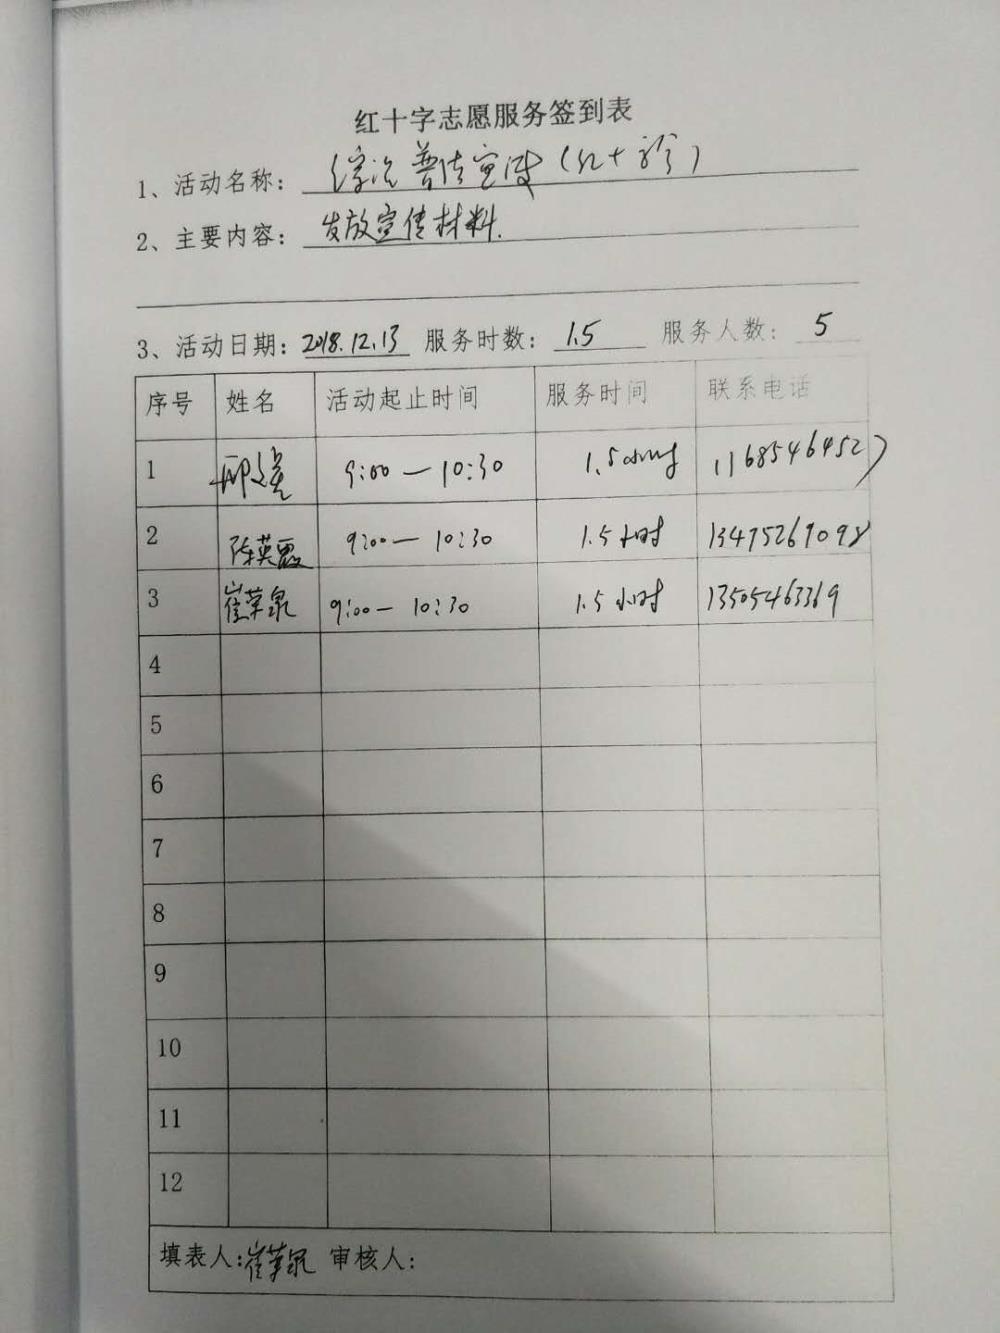 红十字志愿服务签到表
1、活动名称: 综治普法宣传(红十字)
2、主要内容: 发放宣传材料.
3、活动日期: 2018.12.13 服务时数: 1.5 服务人数: 5
序号 姓名 活动起止时间 服务时间 联系电话
1 9:00—10:30 1.5小时
2 陈英霞 9:00—10:30 1.5小时 13475269098
3 崔苹泉 9:00—10:30 1.5小时 13505463369
4
5
6
7
8
9
10
11
12
填表人:崔苹泉 审核人: